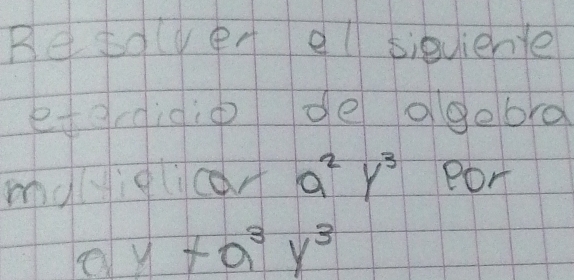 Resolver el siguiente
ejercicio de algebra
multiplicar a² y³ por
ay + a³ y³